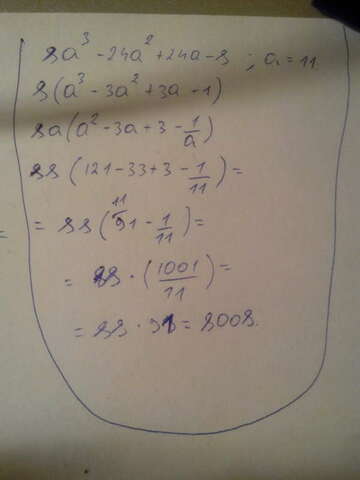 8a³ - 24a² + 24a - 8 ; a = 11.
8(a³ - 3a² + 3a - 1)
8a(a² - 3a + 3 - 1/a)
88(121 - 33 + 3 - 1/11) =
= 88(11/91 - 1/11) =
= 88 · (1001/11) =
= 88 · 91 = 8008.